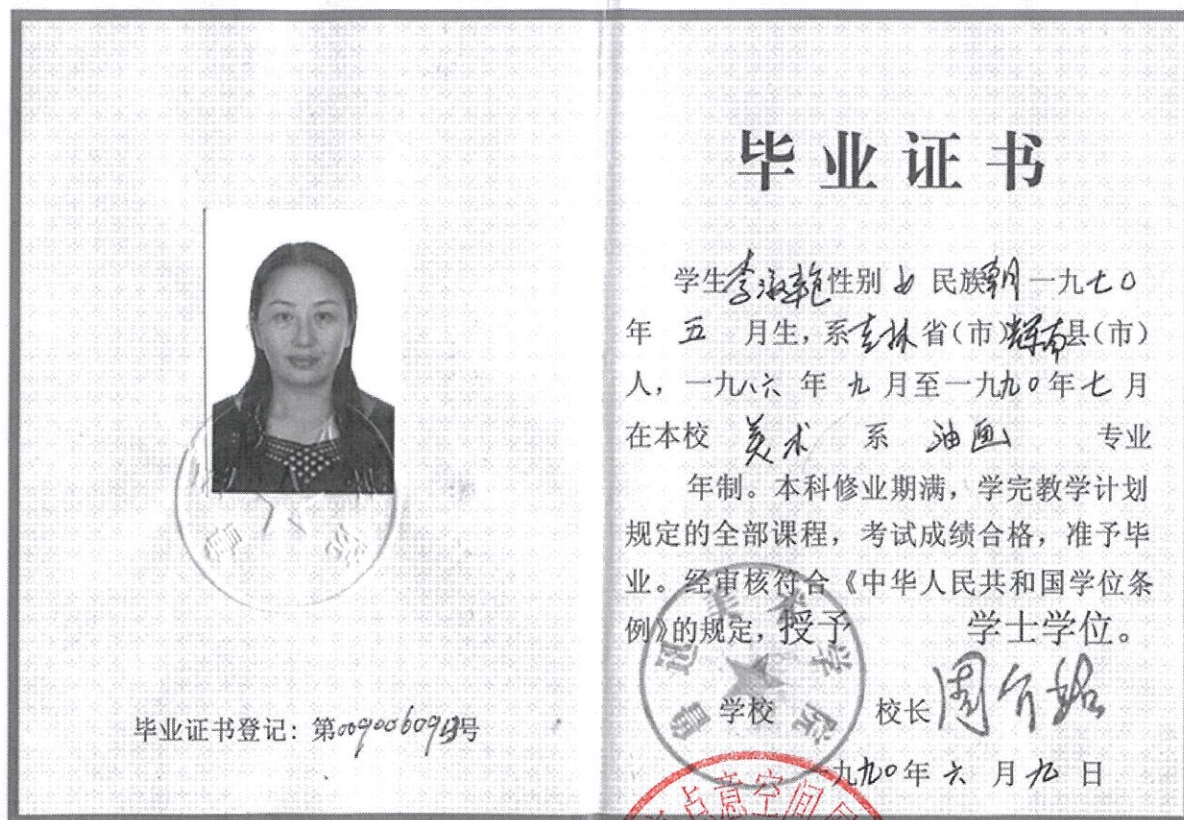 毕业证书
学生李淑艳性别女民族朝一九七0
年五月生,系吉林省(市)辉南县(市)
人,一九八六年九月至一九九0年七月
在本校美术系油画专业
年制。本科修业期满,学完教学计划
规定的全部课程,考试成绩合格,准予毕
业。经审核符合《中华人民共和国学位条
例》的规定,授予 学士学位。
鲁迅美术学院
学校 校长周介
一九九0年六月九日
毕业证书登记:第号
点意空间